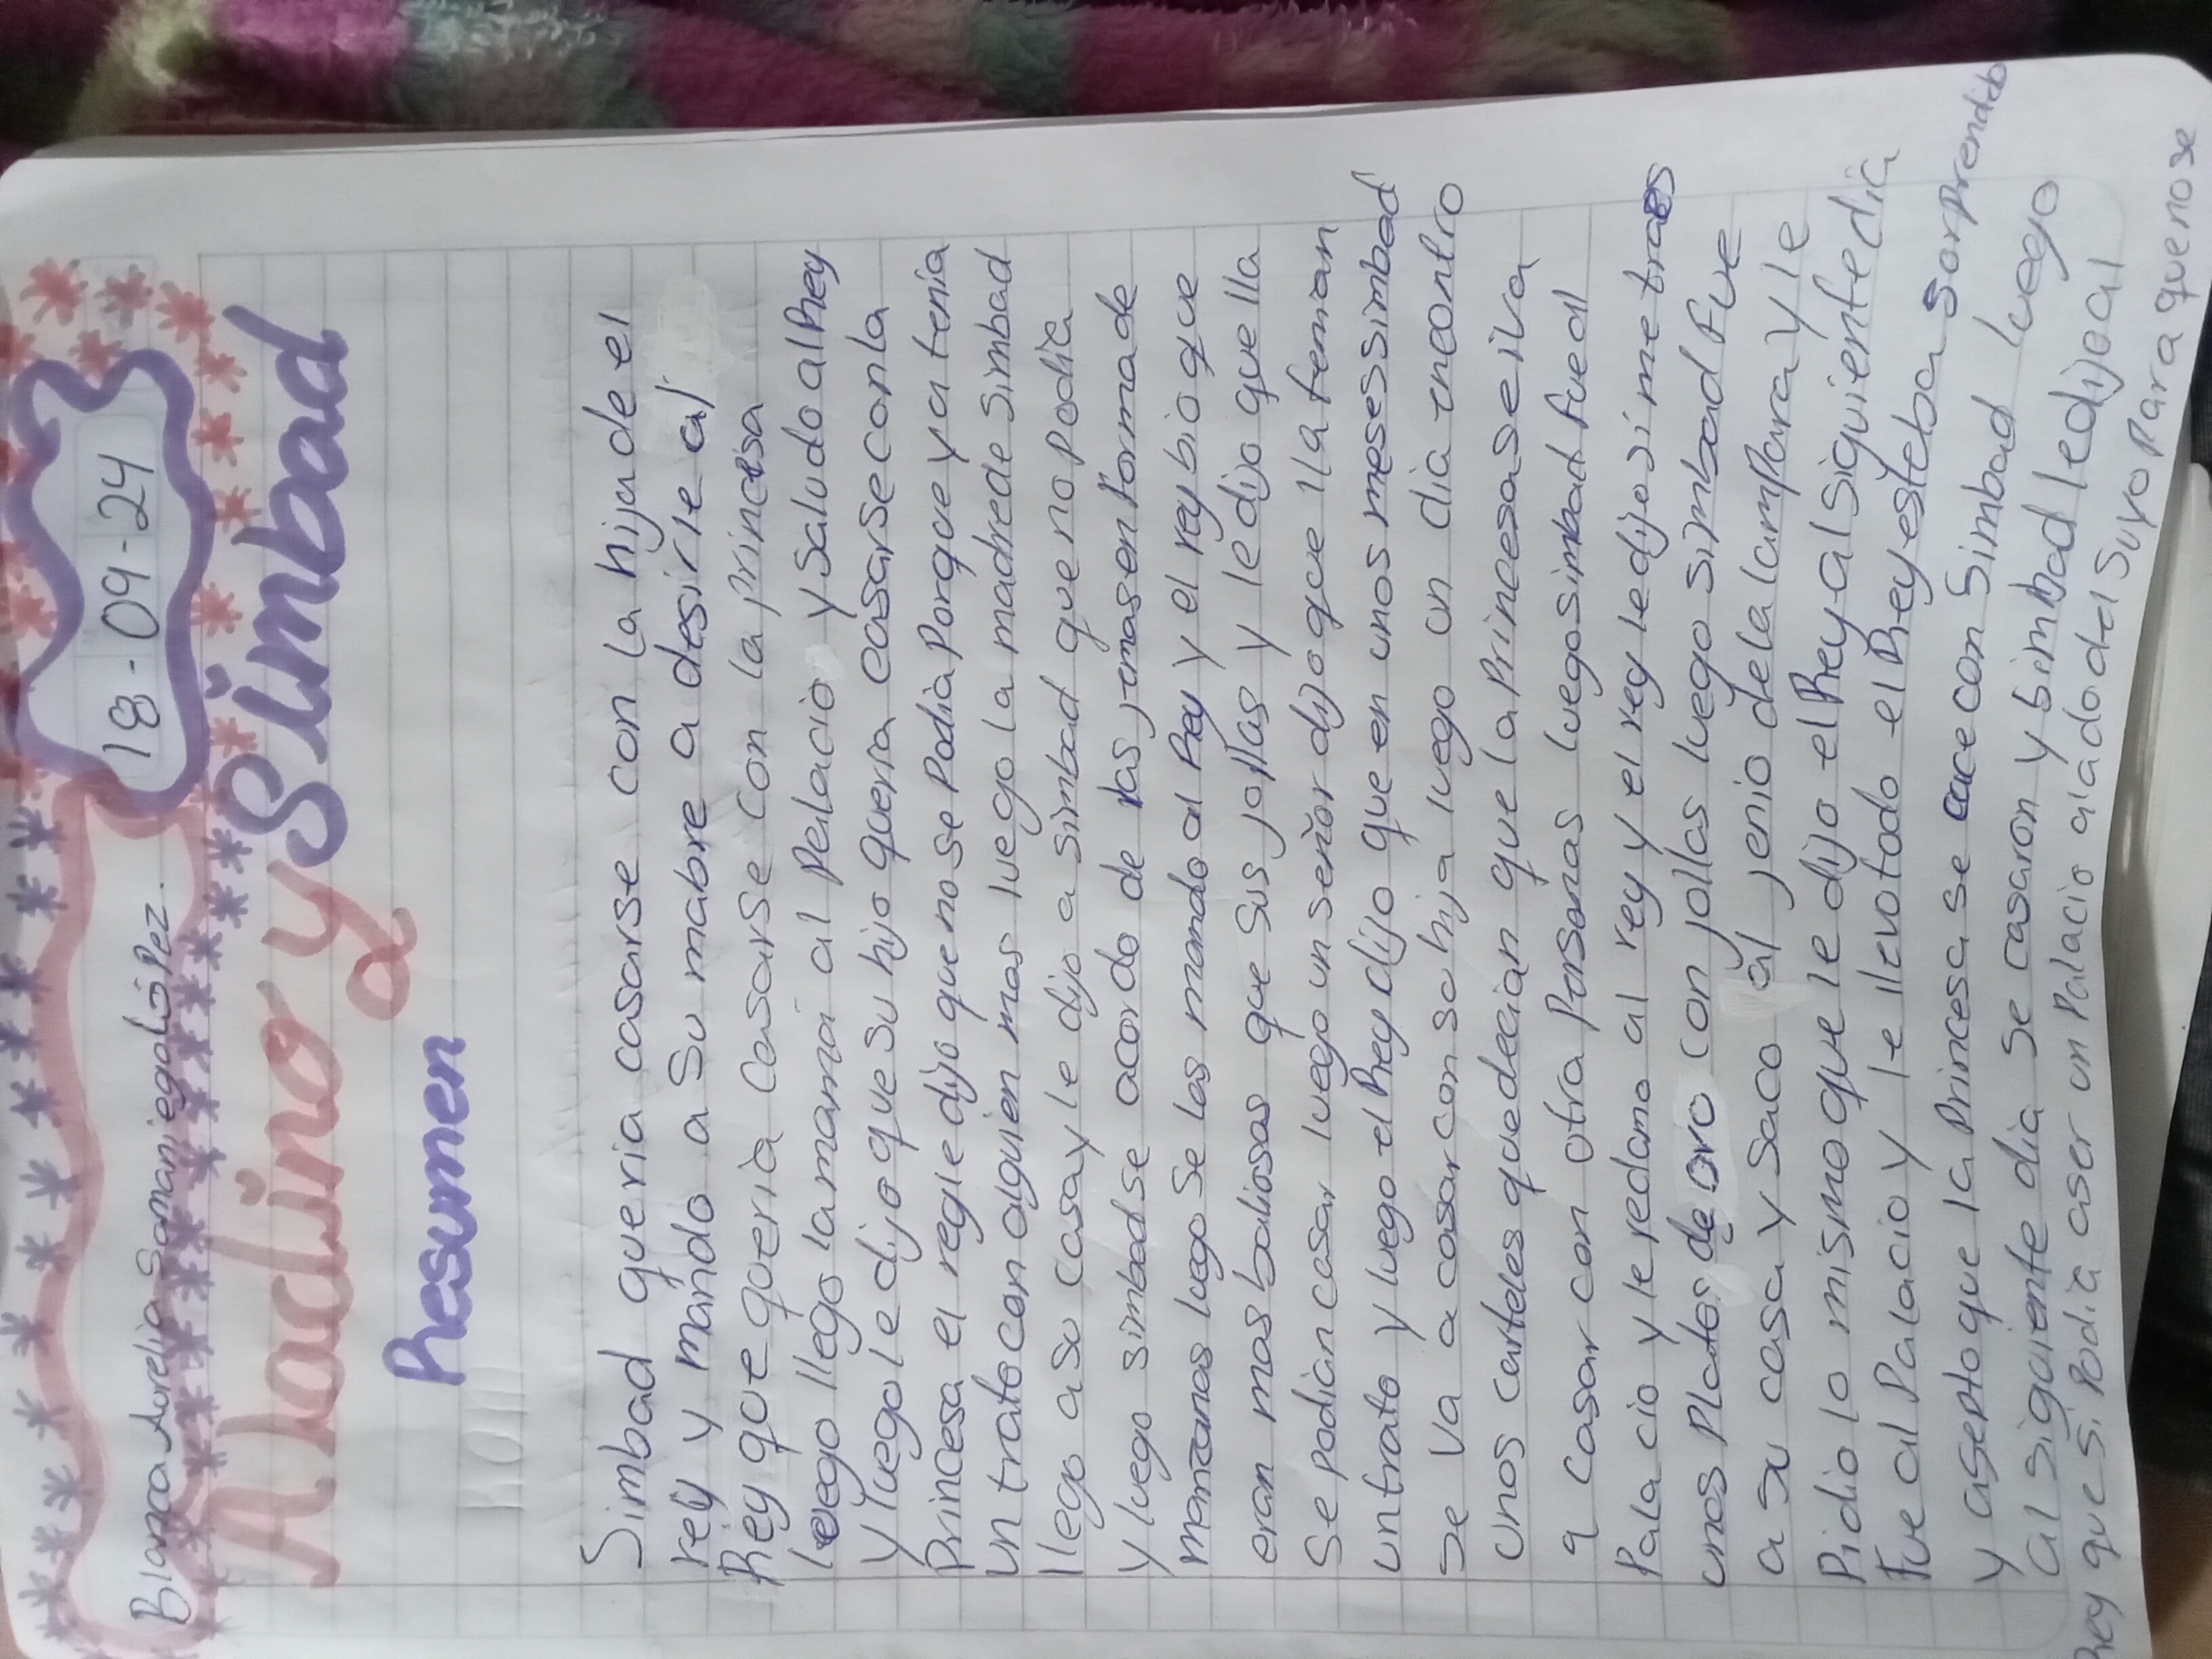 Blanca Aurelia Samaniego LóPez.
18-09-24
Aladino y Simbad
Resumen
Simbad queria casarse con la hija de el
rey y mando a su mabre a desirle al
Rey que queria Casarse con la princesa
luego llego la mamá al Palacio y Saludo al Rey
y luego le dijo que su hijo queria casarse con la
Princesa el regle dijo que no se Podia Porque ya tenia
un trato con alguien mas luego la madre de Simbad
llego a su casa y le dijo a simbad que no podia
y luego simbad se acordo de las jemas en formade
manzanas luego Se las mando al Rey y el rey bio que
eran mas baliosas que sus jollas y le dijo que lla
Se podian casar luego un señor dijo que lla temian
untrato y luego el Rey dijo que en unos meses simbad
se va a casar con su hija luego un dia encontro
Unos carteles que decian que la Princesa se iva
a Casar con otra Persona luego simbad fue al
Palacio y le reclamo al rey y el rey le dijo si me traes
unos Platos de oro con jollas luego simbad fue
a su casa y saco al jenio de la lampara y le
Pidio lo mismo que le dijo el Rey al siguiente dia
Fue al Palacio y le llevo todo el Rey estaba Sorprendido
y asepto que la Princesa se case con Simbad luego
al siguiente dia se casaron y simbad le dijo al
Rey que si Podia aser un Palacio al lado del Suyo Para que no se